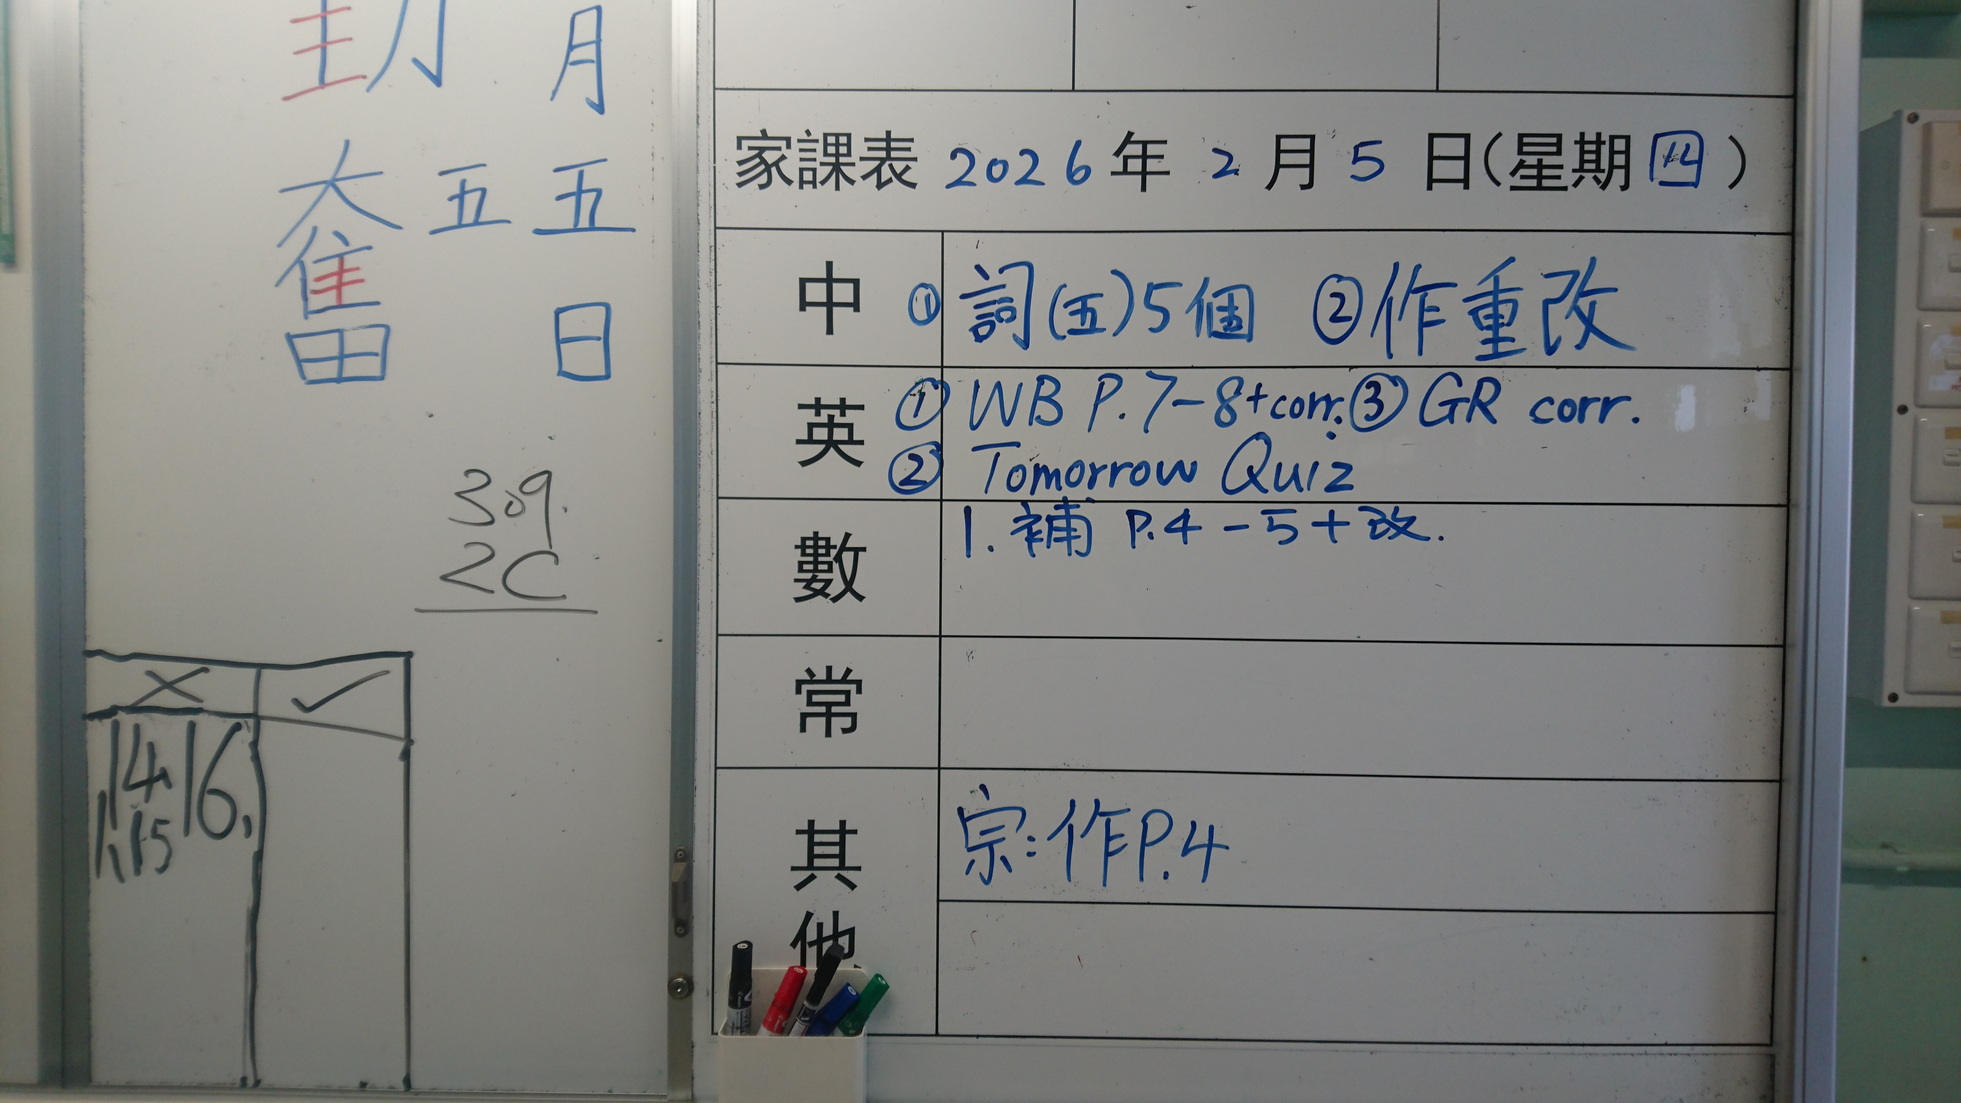 月
奮 五 五
日
309.
2C
× ✓
14. 16,
1, 15
家課表 2026年 2月 5日(星期四)
中 ① 詞(五)5個 ②作重改
英 ① WB P.7-8+corr. ③ GR corr.
② Tomorrow Quiz
數 1. 補 P.4-5+改.
常
其他 宗:作P.4